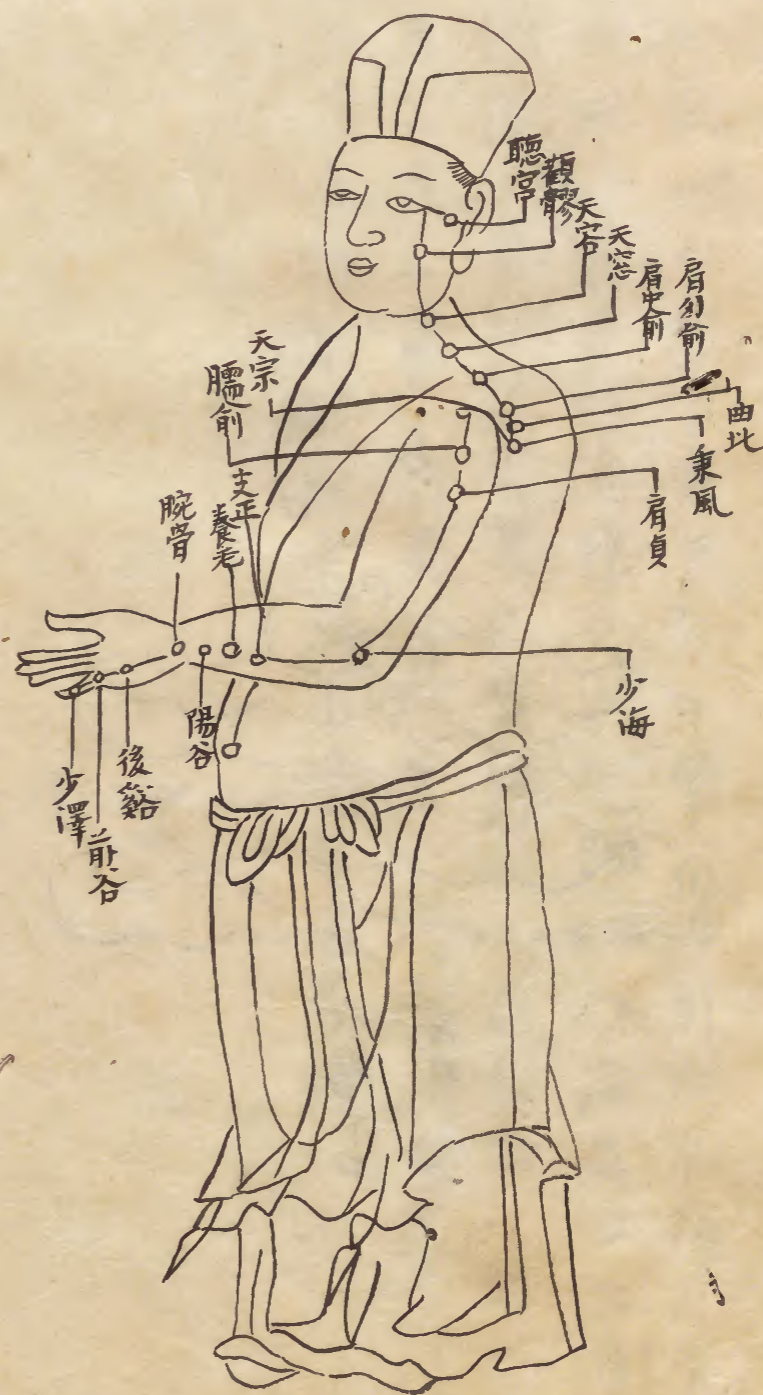 聴宮
顴髎
天容
天窓
肩中俞
肩外俞
秉風
肩貞
天宗
臑俞
支正
養老
腕骨
陽谷
少海
後谿
前谷
少澤